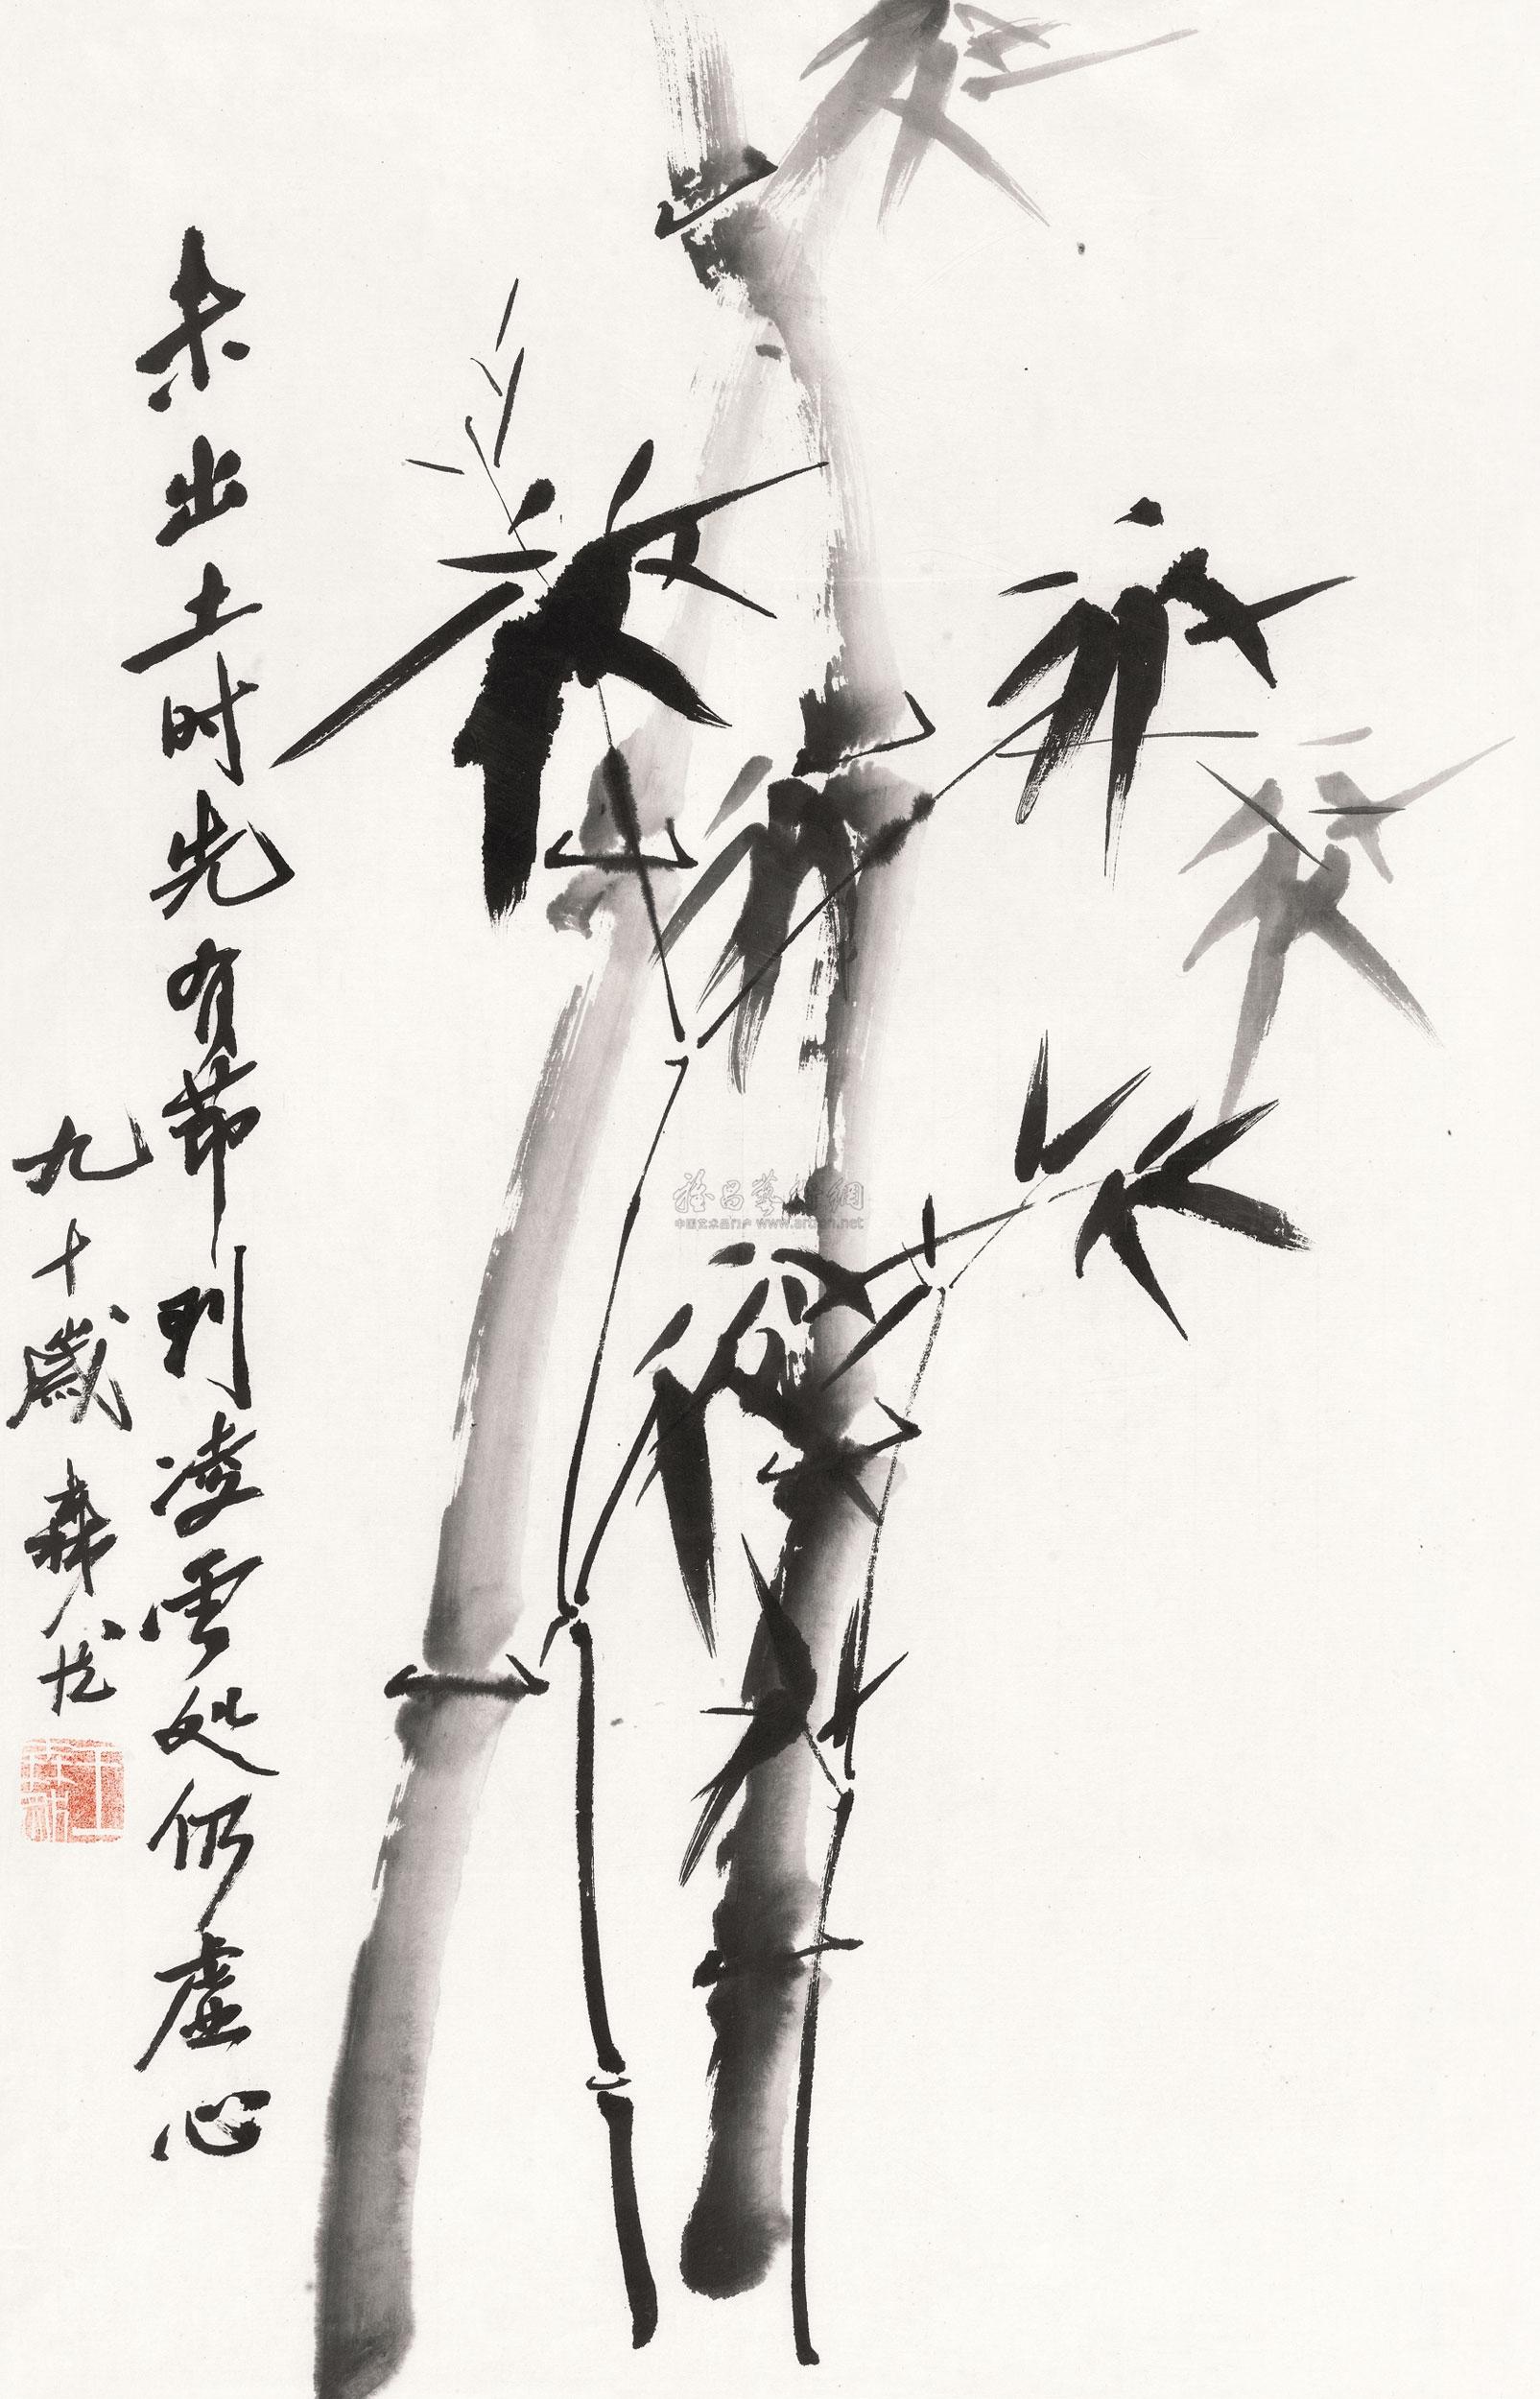 未出土时先有節到凌雲处仍虚心
九十歲森然
雅昌藝術網
中国艺术品门户 www.artron.net